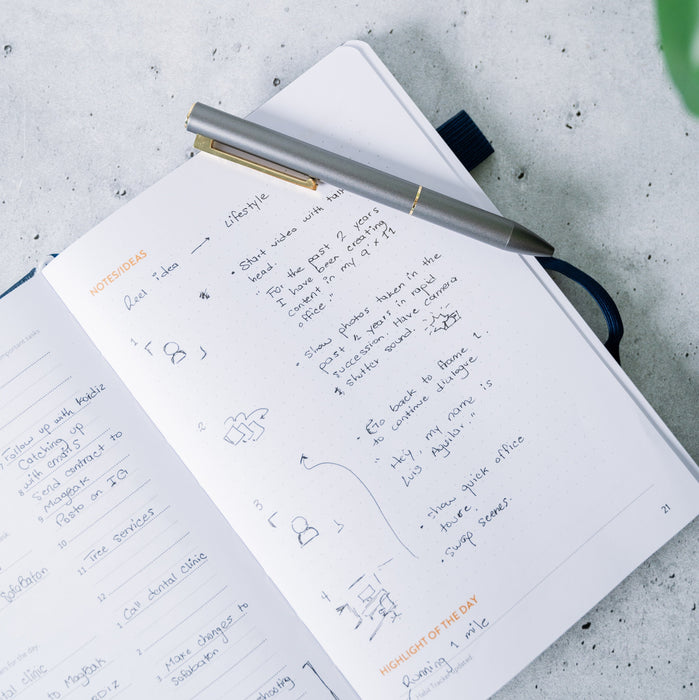 important tasks
7 Follow up with Kordiz
Catching up
8 with emails
Send contract to
9 MagBak
Posto on IG
10
11 Tree services
12
1 Call dental clinic
2
3 Make changes to
Safabaton
Safabaton
for the day
dental clinic
to MagBak
NOTES/IDEAS
Reel idea → Lifestyle
• Start video with talk
head.
" For the past 2 years
I have been creating
content in my 9' x 11
office."
• Show photos taken in the
past 2 years in rapid
succession. Have camera
shutter sound.
• Go back to frame 1.
to continue dialogue
" Hey, my name is
Luis Aguilar."
• show quick office
toure.
• swap scenes.
1
2
3
4
21
HIGHLIGHT OF THE DAY
Running 1 mile